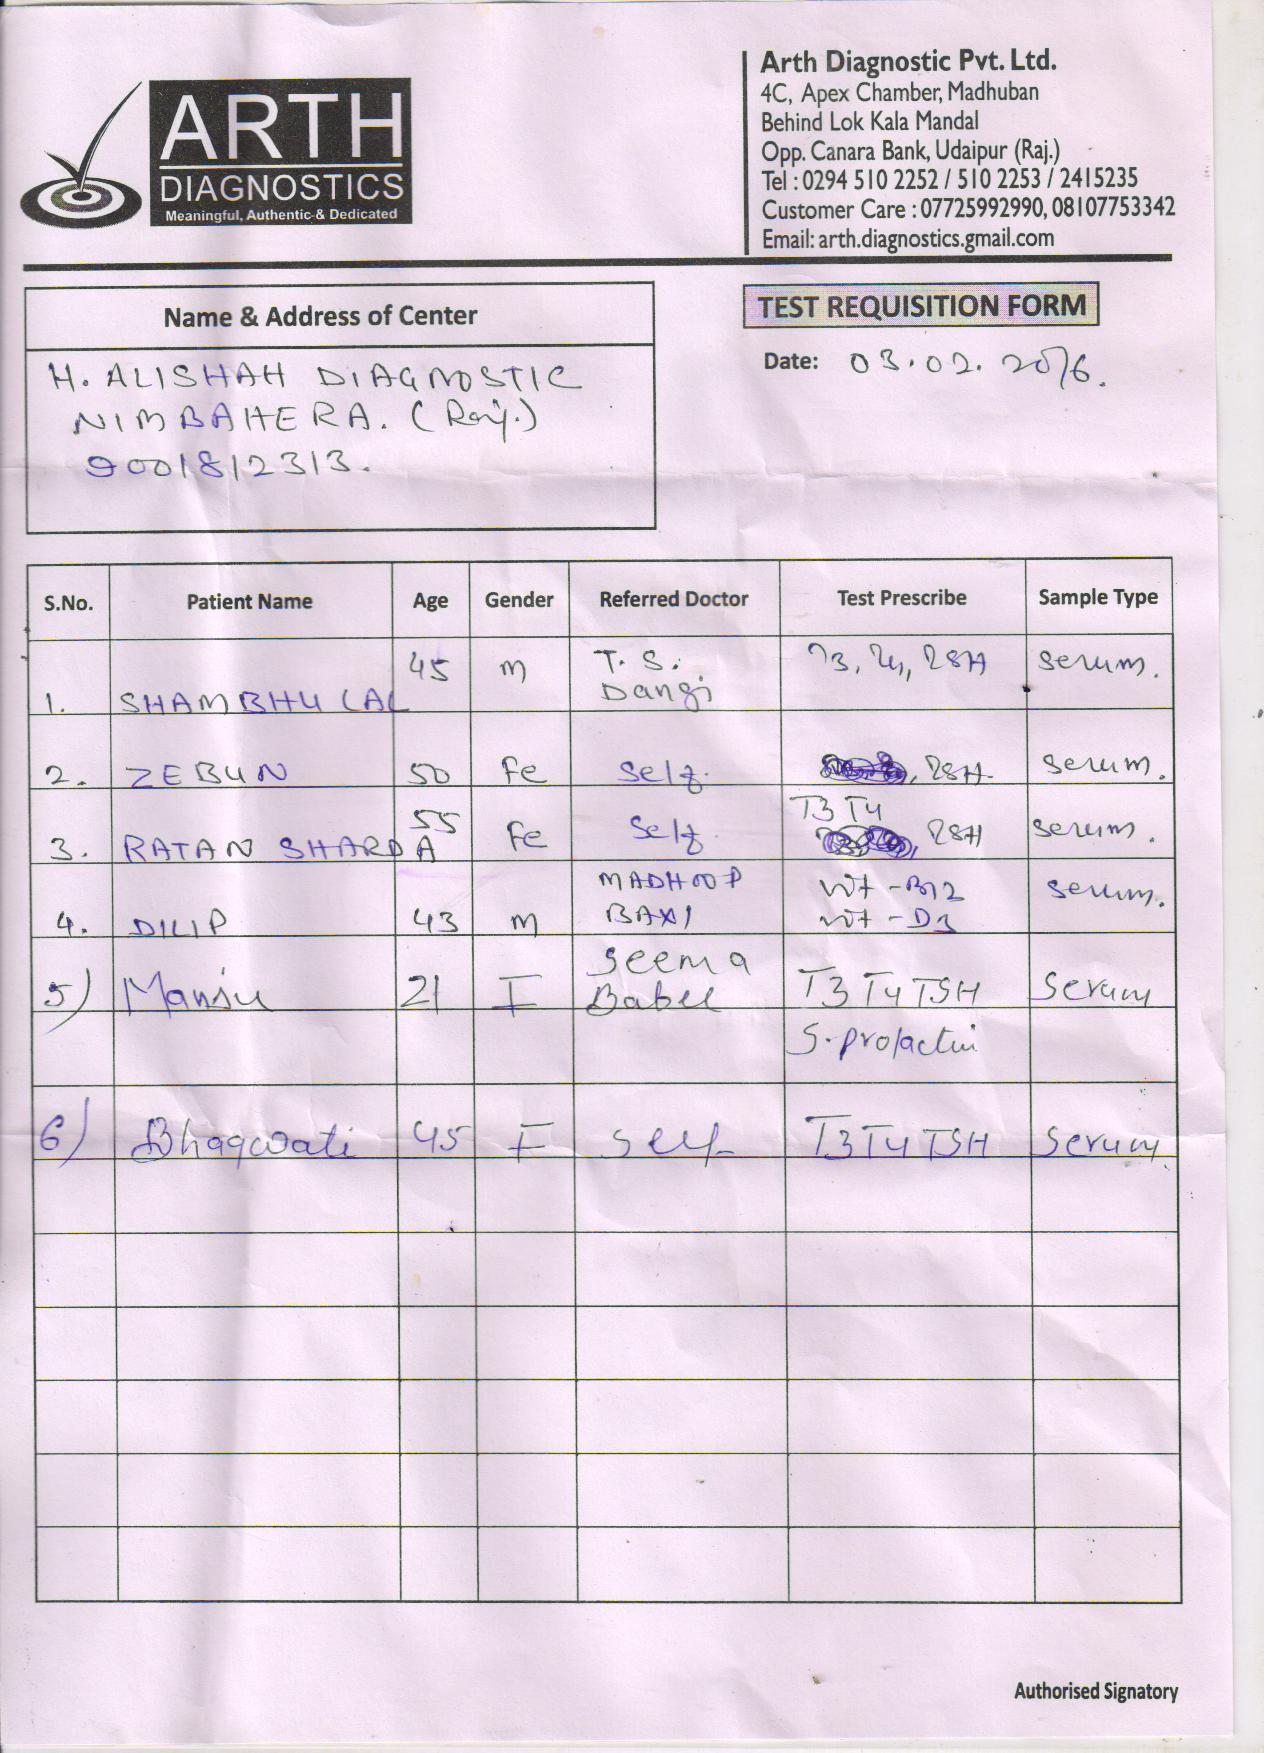 ARTH
DIAGNOSTICS
Meaningful, Authentic & Dedicated
Arth Diagnostic Pvt. Ltd.
4C, Apex Chamber, Madhuban
Behind Lok Kala Mandal
Opp. Canara Bank, Udaipur (Raj.)
Tel : 0294 510 2252 / 510 2253 / 2415235
Customer Care : 07725992990, 08107753342
Email: arth.diagnostics.gmail.com
Name & Address of Center
H. ALISHAH DIAGNOSTIC
NIMBAHERA. (Raj.)
9001812313.
TEST REQUISITION FORM
Date: 03.02.2016.
S.No. Patient Name Age Gender Referred Doctor Test Prescribe Sample Type
1. SHAMBHU LAL 45 m T. S. Dangi T3, T4, TSH Serum.
2. ZEBUN 50 Fe Self. TSH. Serum.
3. RATAN SHARDA 55 Fe Self. T3 T4, TSH Serum.
4. DILIP 43 m MADHOOP BAXI Vit - B12 Serum.
Vit - D3
5) 21 F Seema T3 T4 TSH Serum
S. prolactin
6) Bhagwati 45 F Self T3 T4 TSH Serum.
Authorised Signatory